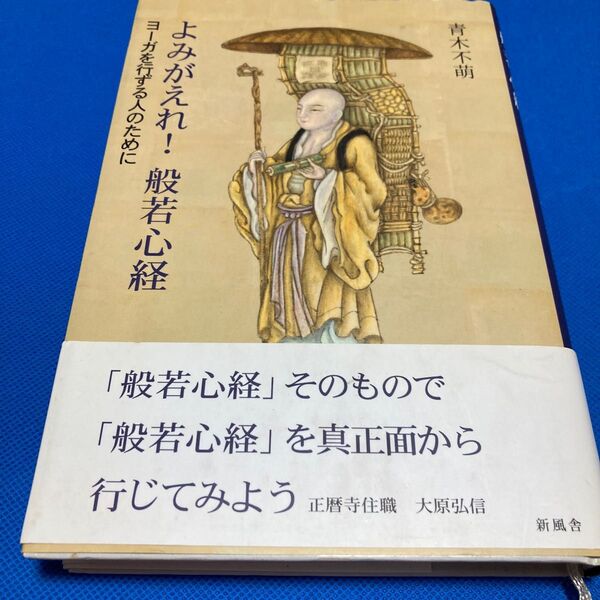 青木不萌
よみがえれ！般若心経
ヨーガを行ずる人のために
「般若心経」そのもので
「般若心経」を真正面から
行じてみよう 正暦寺住職 大原弘信
新風舎